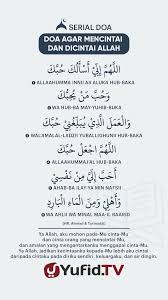 SERIAL DOA
DOA AGAR MENCINTAI
DAN DICINTAI ALLAH
اللَّهُمَّ إِنِّيْ أَسْأَلُكَ حُبَّكَ
ALLAAHUMMA INNII AS ALUKA HUB-BAKA
وَحُبَّ مَنْ يُحِبُّكَ
WA HUB-BA MAY-YUHIB-BUKA
وَالْعَمَلَ الَّذِيْ يُبَلِّغُنِيْ حُبَّكَ
WAL'AMALAL-LADZII YUBALLIGHUNII HUB-BAKA
اللَّهُمَّ اجْعَلْ حُبَّكَ
ALLAAHUMMAJ'AL HUB-BAKA
أَحَبَّ إِلَيَّ مِنْ نَفْسِيْ
AHAB-BA ILAY-YA MIN NAFSII
وَأَهْلِيْ وَمِنَ الْمَاءِ الْبَارِدِ
WA AHLII WA MINAL MAA-IL BAARID
(HR. Ahmad & Turmudzi)
Ya Allah, aku mohon pada-Mu cinta-Mu
dan cinta orang yang mencintai-Mu,
dan amalan yang mengantarkanku menggapai cinta-Mu.
Ya Allah, jadikan kecintaanku kepada-Mu lebih aku cintai
daripada cintaku pada diriku sendiri, keluargaku, dan air dingin.
YUFID.TV